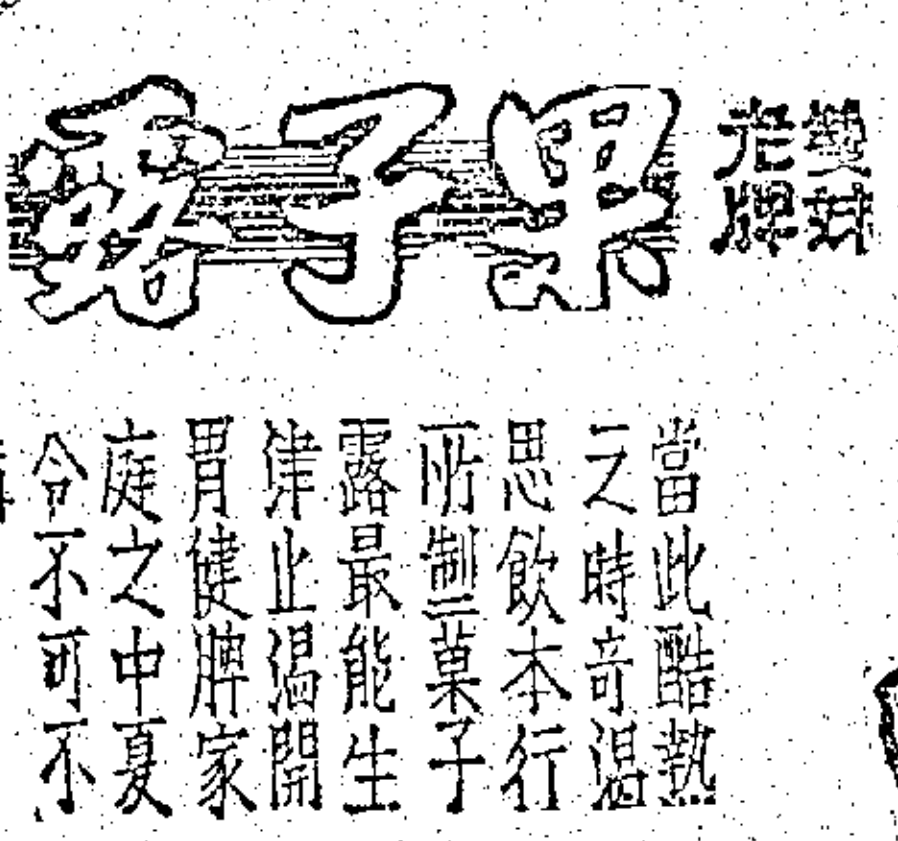 雙妹
老牌
果子露
當此酷熱
之時奇渴
思飲本行
所製菓子
露最能生
津止渴開
胃健脾家
庭之中夏
令不可不